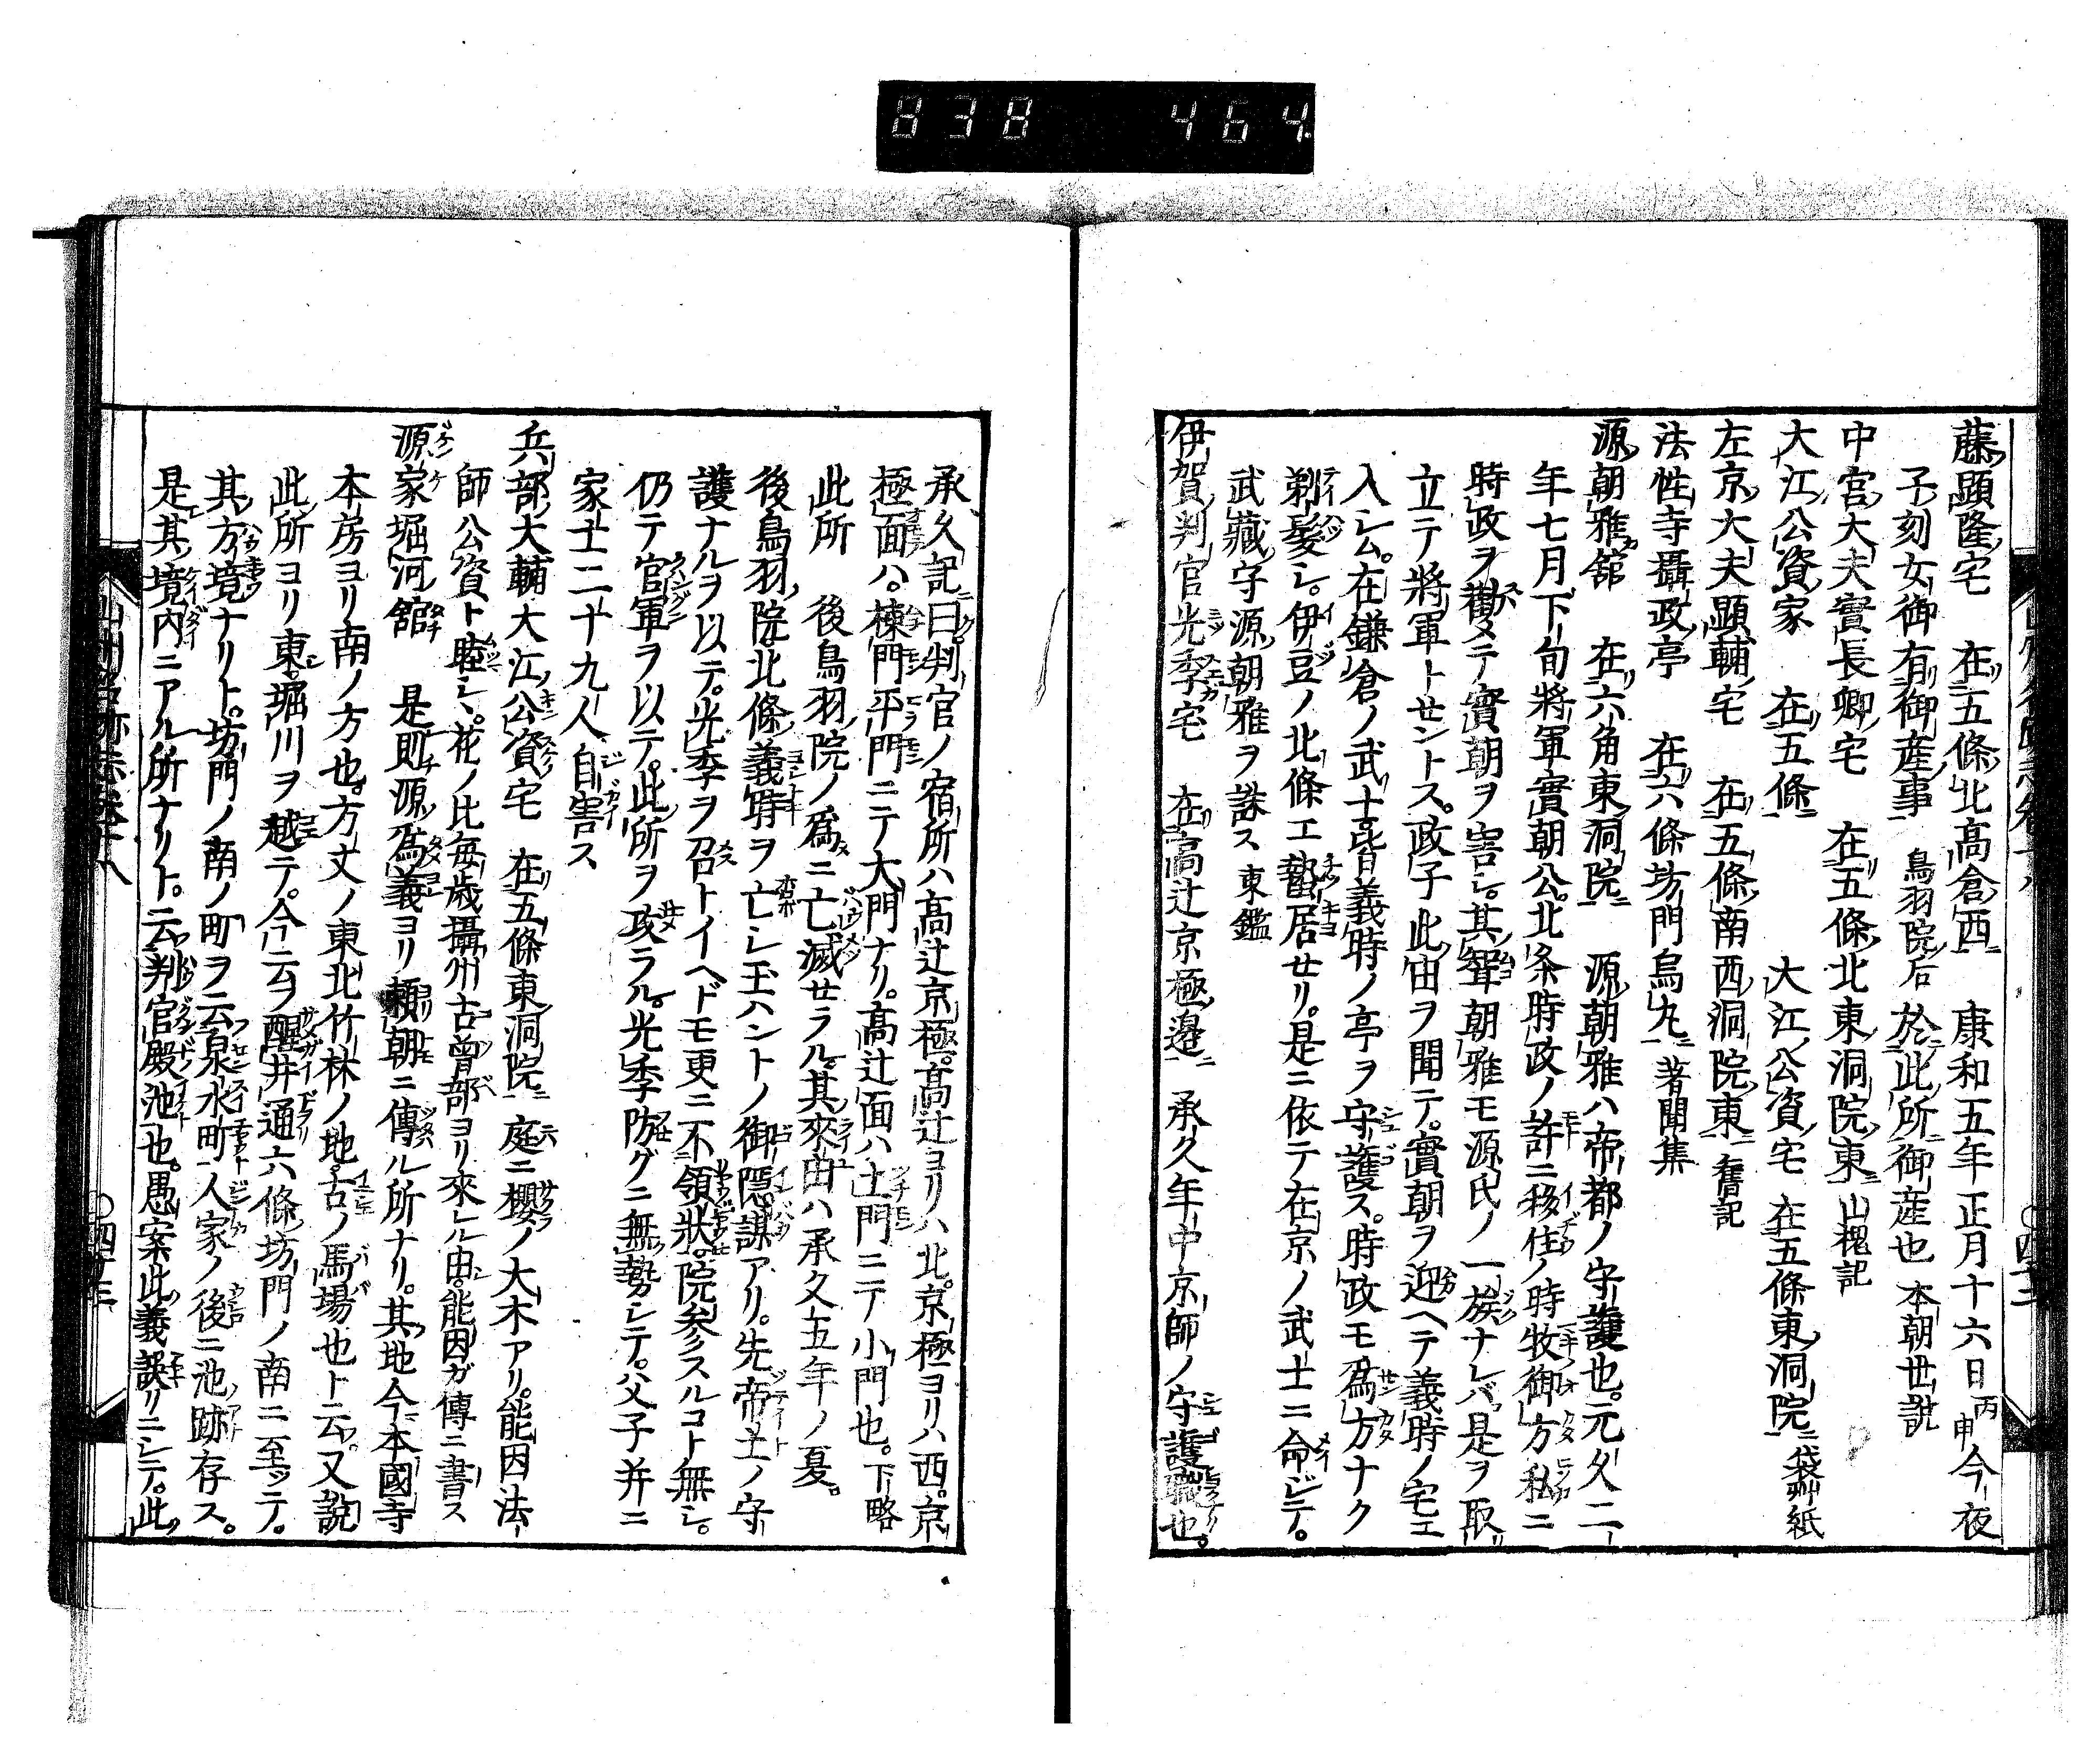 838 464
藤顕隆宅 在五條北高倉西 康和五年正月十六日丙申今夜
子刻女御有御産事 鳥羽院后 於此所御産也 本朝世説
中宮大夫實長卿宅 在五條北東洞院東 山槐記
大江公資家 在五條 大江公資宅 在五條東洞院 袋艸紙
左京大夫顕輔宅 在五條南西洞院東 舊記
法性寺攝政亭 在六條坊門烏丸 著聞集
源朝雅舘 在六角東洞院 源朝雅ハ帝都ノ守護也。元久二
年七月下旬將軍實朝公。北条時政ノ許ニ移住ノ時牧御方私ニ
時政ヲ勸メテ實朝ヲ害シ。其聟朝雅モ源氏ノ一族ナレバ是ヲ取
立テ將軍トセントス。政子此由ヲ聞テ。實朝ヲ迎ヘテ義時ノ宅エ
入シム。在鎌倉ノ武士皆義時ノ亭ヲ守護ス。時政モ為方ナク
剃髪シ。伊豆ノ北條エ蟄居セリ。是ニ依テ在京ノ武士ニ命ジテ。
武藏守源朝雅ヲ誅ス 東鑑
伊賀判官光季宅 在高辻京極邊 承久年中京師ノ守護職也。
承久記曰。判官ノ宿所ハ高辻京極。高辻ヨリハ北。京極ヨリハ西。京
極面ハ。棟門平門ニテ大門ナリ。高辻面ハ土門ニテ小門也。下略
此所 後鳥羽院ノ為ニ亡滅セラル。其來由ハ承久五年ノ夏。
後鳥羽院北條義時ヲ亡シ玉ハントノ御隠謀アリ。先帝土ノ守
護ナルヲ以テ。光季ヲ召トイヘドモ更ニ不領狀。院参スルコト無シ。
仍テ官軍ヲ以テ。此所ヲ攻ラル。光季防グニ無勢シテ。父子并ニ
家士二十九人自害ス
兵部大輔大江公資宅 在五條東洞院 庭ニ櫻ノ大木アリ。能因法
師公資ト睦シ。花ノ比毎歳攝州古曽部ヨリ來レル由。能因ガ傳ニ書ス
源家堀河舘 是則源為義ヨリ頼朝ニ傳ル所ナリ。其地今本國寺
本房ヨリ南ノ方也。方丈ノ東北竹林ノ地。古ノ馬場也ト云。又説
此所ヨリ東。堀川ヲ越テ。今ニ云ヲ醒井通六條坊門ノ南ニ至ッテ。
其方境ナリト。坊門ノ南ノ町ヲ云泉水町人家ノ後ニ池跡存ス。
是其境内ニアル所ナリト。云判官殿池也。愚案此義誤リニシテ。此